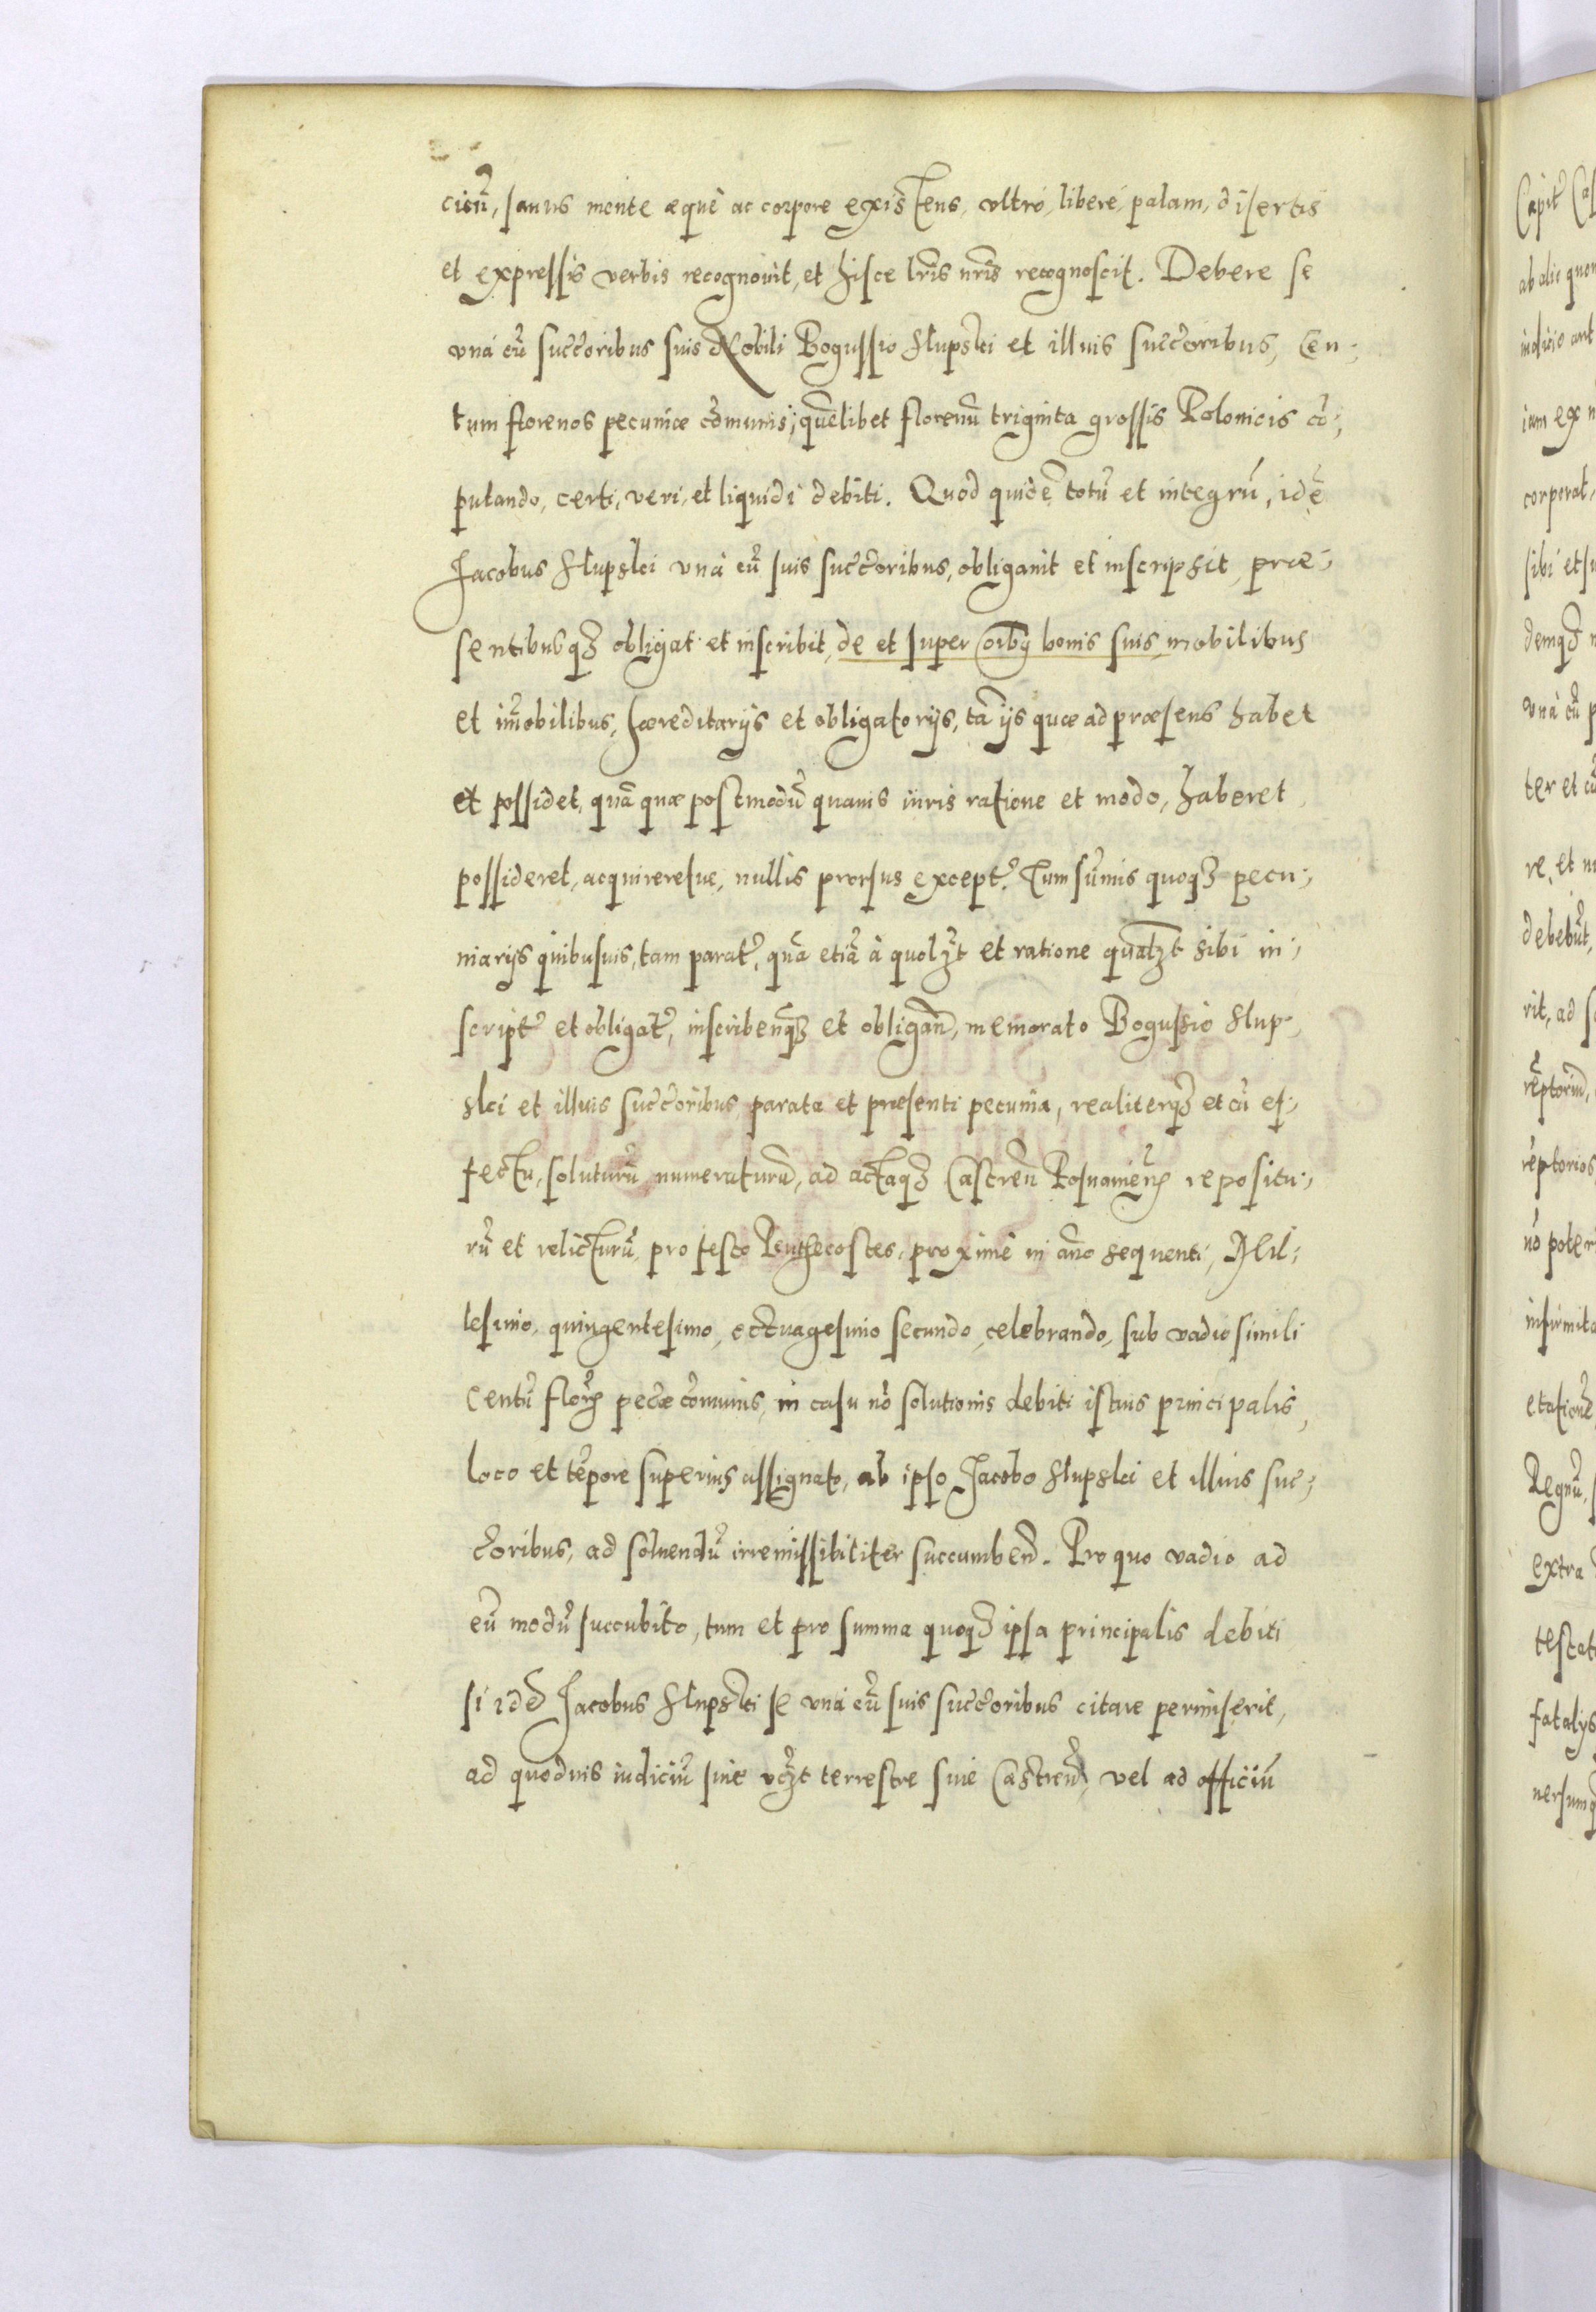 cieñ, sanus mente æquè ac corpore existens, vltrò, liberè, palam, disertis
et expressis verbis recognouit, et hisce lr̃is nr̃is recognoscit. Debere se
vnà cũ succ̃oribus suis Nobili Bogussio Slupski et illius succ̃oribus, Cen-
tum florenos pecuniæ cõmunis, quẽlibet florenũ triginta grossis Polonicis cõ-
putando, certi, veri, et liquidi debiti. Quod quidẽ totũ et integrũ, idẽ
Jacobus Slupski vnà cũ suis succ̃oribus, obligauit et inscripsit, præ-
sentibusqꝫ obligat et inscribit, de et super oĩbꝯ bonis suis mobilibus
et im̃obilibus, hæreditarijs et obligatorijs, tã ijs quæ ad præsens habet
et possidet, quã quæ postmodũ quauis iuris ratione et modo, haberet
possideret, acquireretue, nullis prorsus except̃. Tum sum̃is quoqꝫ pecu-
niarijs quibusuis, tam parat̃, quã etiã à quolꝫt et ratione qualꝫt sibi in-
script̃ et obligat̃, inscribenqꝫ et obligañ, memorato Bogussio Slup-
ski et illius succ̃oribus, parata et præsenti pecunia, realiterqꝫ et cũ ef-
fectu, soluturũ, numeraturũ, ad actaqꝫ Castreñ Posnanieñ repositu-
rũ et relicturũ, pro festo Penthecostes, proximè in ãno sequenti, Mil-
lesimo, quingentesimo, octuagesimo secundo, celebrando, sub vadio simili
Centũ floꝝ pec̃æ cõmunis, in casu nõ solutionis debiti istius principalis,
loco et tẽpore superius assignato, ab ipso Jacobo Slupski et illius suc-
c̃oribus, ad soluendũ irremissibiliter succumbeñ. Pro quo vadio ad
eũ modũ succubito, tum et pro summa quoqꝫ ipsa principalis debiti
si idẽ Jacobus Slupski se vnà cũ suis succ̃oribus citare permiserit,
ad quoduis iudiciũ siue vꝫt terrestre siue Castreñ, vel ad officiũ